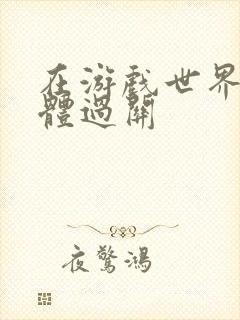 在游戲世界
體過關
夜驚鴻